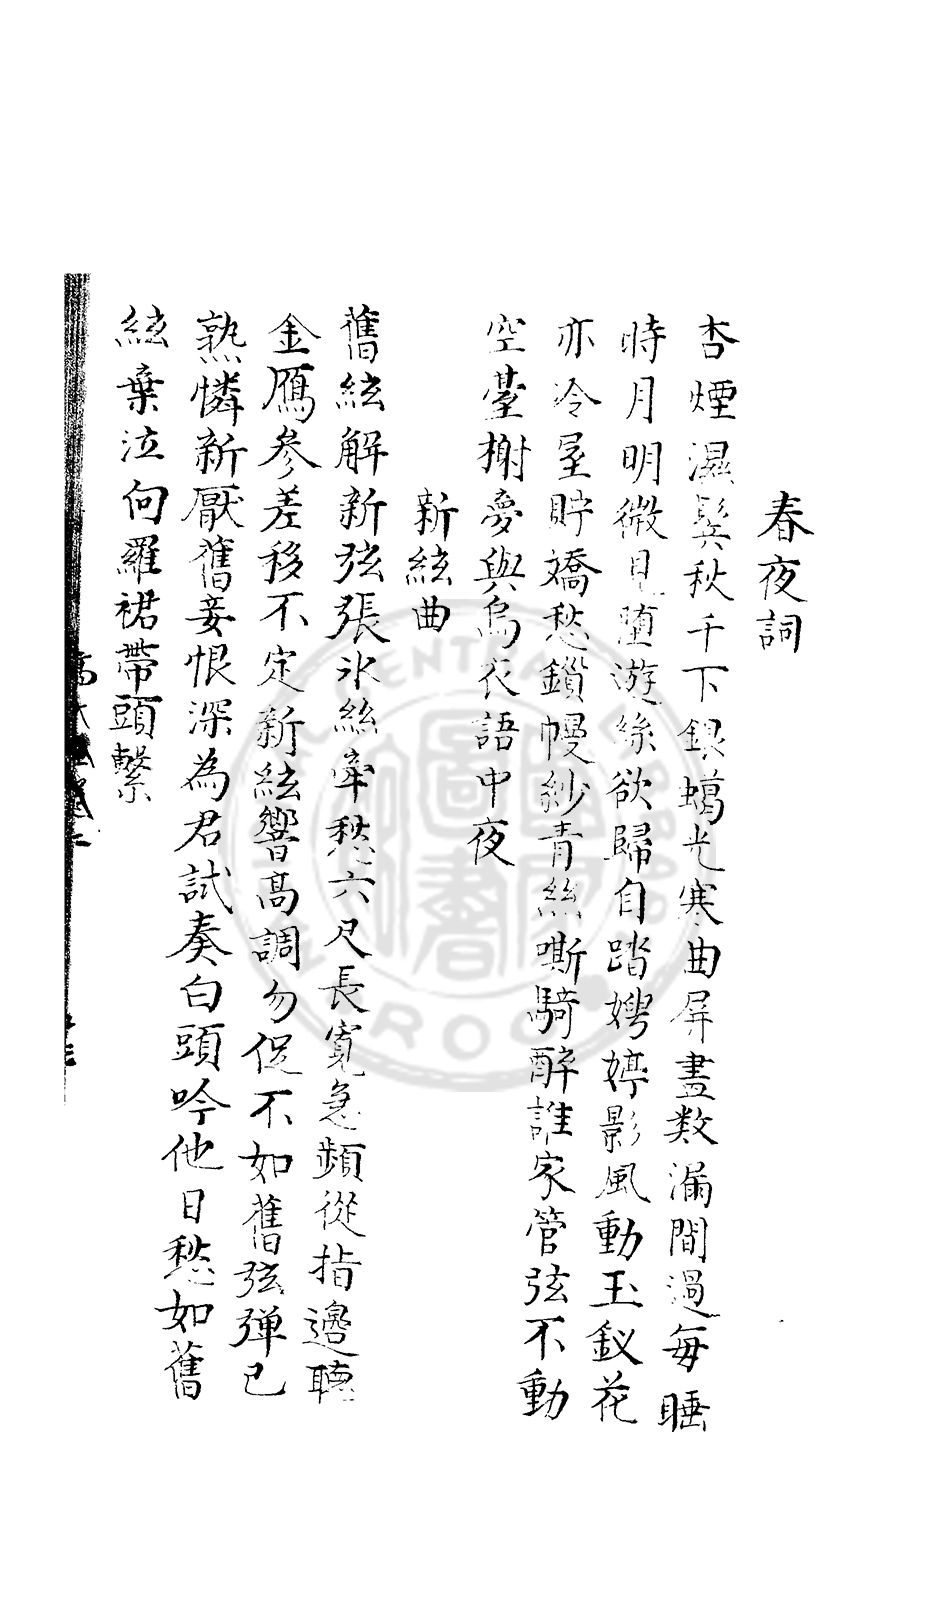 春夜詞
杏煙濕鬓秋千下銀蠋光寒曲屏畫数漏間過每睡
時月明微見堕遊絲欲歸自踏娉婷影風動玉釵花
亦冷屋貯嬌愁鎖幔紗青絲嘶騎醉誰家管弦不動
空臺榭夢與烏衣語中夜
新絃曲
舊絃解新弦張氷絲牽愁六尺長寛急頻從指邊聽
金鴈參差移不定新絃響高調勿促不如舊弦弹已
熟憐新厭舊妾恨深為君試奏白頭吟他日愁如舊
絃棄泣向羅裙帶頭繫